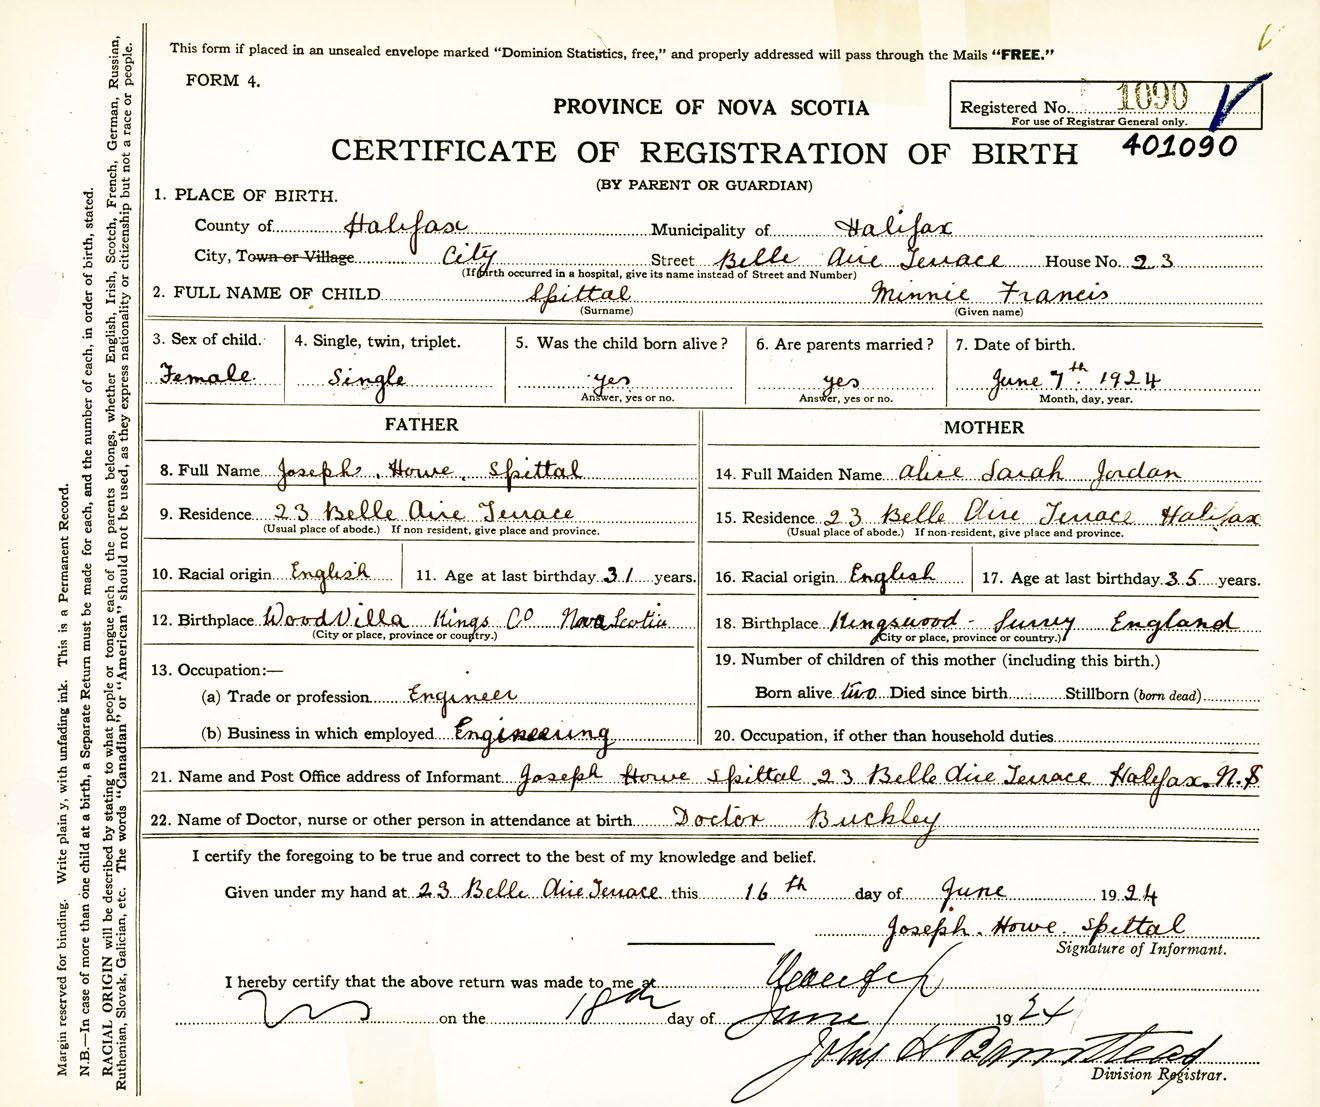 This form if placed in an unsealed envelope marked "Dominion Statistics, free," and properly addressed will pass through the Mails "FREE."
FORM 4.
PROVINCE OF NOVA SCOTIA
Registered No. 1090
For use of Registrar General only.
401090
CERTIFICATE OF REGISTRATION OF BIRTH
(BY PARENT OR GUARDIAN)
1. PLACE OF BIRTH.
County of Halifax Municipality of Halifax
City, Town or Village City Street Belle Aire Terrace House No. 23
(If birth occurred in a hospital, give its name instead of Street and Number)
2. FULL NAME OF CHILD Spittal Minnie Francis
(Surname) (Given name)
3. Sex of child. 4. Single, twin, triplet. 5. Was the child born alive? 6. Are parents married? 7. Date of birth.
Female Single yes yes June 7th 1924
Answer, yes or no. Answer, yes or no. Month, day, year.
FATHER MOTHER
8. Full Name Joseph Howe Spittal
9. Residence 23 Belle Aire Terrace
(Usual place of abode.) If non resident, give place and province.
10. Racial origin English 11. Age at last birthday 31 years.
12. Birthplace WoodVilla Kings Co Nova Scotia
(City or place, province or country.)
13. Occupation:—
(a) Trade or profession Engineer
(b) Business in which employed Engineering
14. Full Maiden Name Alice Sarah Jordan
15. Residence 23 Belle Aire Terrace Halifax
(Usual place of abode.) If non-resident, give place and province.
16. Racial origin English 17. Age at last birthday 35 years.
18. Birthplace Kingswood - Surrey England
(City or place, province or country.)
19. Number of children of this mother (including this birth.)
Born alive two Died since birth Stillborn (born dead)
20. Occupation, if other than household duties
21. Name and Post Office address of Informant Joseph Howe Spittal 23 Belle Aire Terrace Halifax. N.S
22. Name of Doctor, nurse or other person in attendance at birth Doctor Buckley
I certify the foregoing to be true and correct to the best of my knowledge and belief.
Given under my hand at 23 Belle Aire Terrace this 16th day of June 1924
Joseph. Howe. Spittal
Signature of Informant.
I hereby certify that the above return was made to me at Halifax
NS on the 18th day of June 1924
John H Barnstead
Division Registrar.
Margin reserved for binding. Write plain y, with unfading ink. This is a Permanent Record.
N.B.—In case of more than one child at a birth, a Separate Return must be made for each, and the number of each, in order of birth, stated.
RACIAL ORIGIN will be described by stating to what people or tongue each of the parents belongs, whether English, Irish, Scotch, French, German, Russian,
Ruthenian, Slovak, Galician, etc. The words "Canadian" or "American" should not be used, as they express nationality or citizenship but not a race or people.